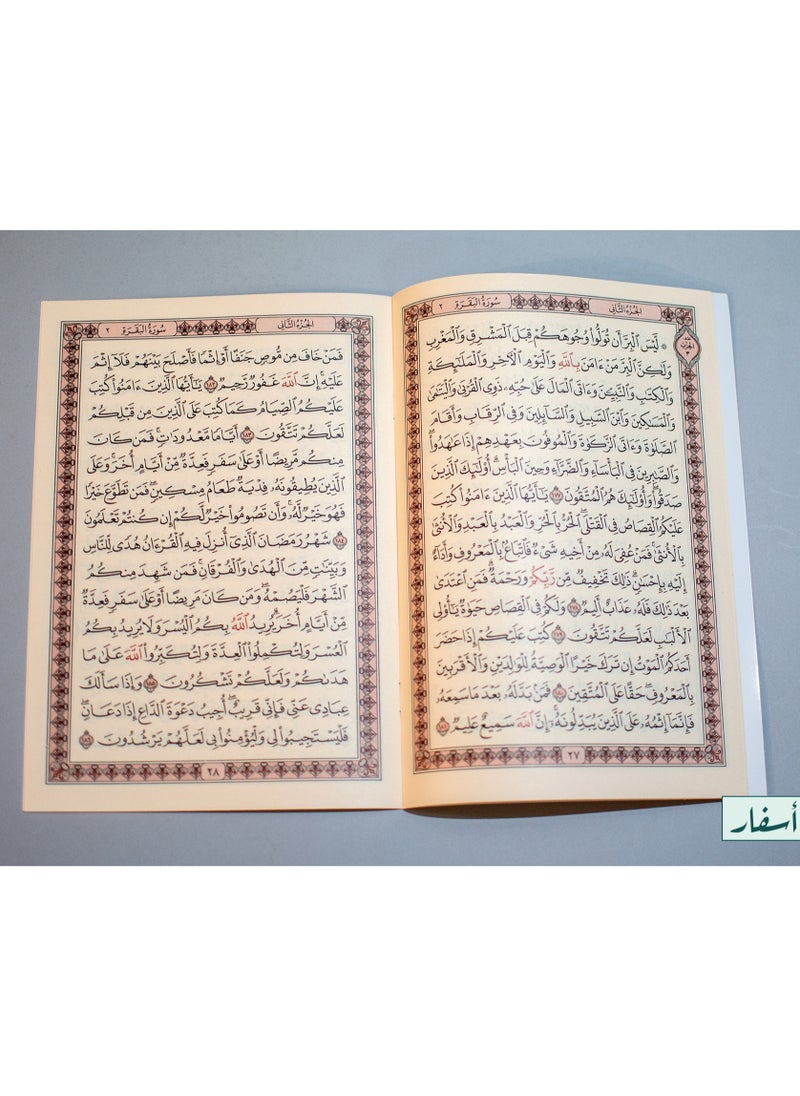 سُورَةُ البَقَرَةِ ٢
الجُزْءُ الثَّانِي
الحِزْبُ ٣
۞ لَّيْسَ ٱلْبِرَّ أَن تُوَلُّوا۟ وُجُوهَكُمْ قِبَلَ ٱلْمَشْرِقِ وَٱلْمَغْرِبِ
وَلَـٰكِنَّ ٱلْبِرَّ مَنْ ءَامَنَ بِٱللَّهِ وَٱلْيَوْمِ ٱلْـَٔاخِرِ وَٱلْمَلَـٰٓئِكَةِ
وَٱلْكِتَـٰبِ وَٱلنَّبِيِّـۧنَ وَءَاتَى ٱلْمَالَ عَلَىٰ حُبِّهِۦ ذَوِى ٱلْقُرْبَىٰ وَٱلْيَتَـٰمَىٰ
وَٱلْمَسَـٰكِينَ وَٱبْنَ ٱلسَّبِيلِ وَٱلسَّآئِلِينَ وَفِى ٱلرِّقَابِ وَأَقَامَ
ٱلصَّلَوٰةَ وَءَاتَى ٱلزَّكَوٰةَ وَٱلْمُوفُونَ بِعَهْدِهِمْ إِذَا عَـٰهَدُوا۟ ۖ
وَٱلصَّـٰبِرِينَ فِى ٱلْبَأْسَآءِ وَٱلضَّرَّآءِ وَحِينَ ٱلْبَأْسِ ۗ أُو۟لَـٰٓئِكَ ٱلَّذِينَ
صَدَقُوا۟ ۖ وَأُو۟لَـٰٓئِكَ هُمُ ٱلْمُتَّقُونَ ١٧٧ يَـٰٓأَيُّهَا ٱلَّذِينَ ءَامَنُوا۟ كُتِبَ
عَلَيْكُمُ ٱلْقِصَاصُ فِى ٱلْقَتْلَى ۖ ٱلْحُرُّ بِٱلْحُرِّ وَٱلْعَبْدُ بِٱلْعَبْدِ وَٱلْأُنثَىٰ
بِٱلْأُنثَىٰ ۚ فَمَنْ عُفِىَ لَهُۥ مِنْ أَخِيهِ شَىْءٌ فَٱتِّبَاعٌۢ بِٱلْمَعْرُوفِ وَأَدَآءٌ
إِلَيْهِ بِإِحْسَـٰنٍ ۗ ذَٰلِكَ تَخْفِيفٌ مِّن رَّبِّكُمْ وَرَحْمَةٌ ۗ فَمَنِ ٱعْتَدَىٰ
بَعْدَ ذَٰلِكَ فَلَهُۥ عَذَابٌ أَلِيمٌ ١٧٨ وَلَكُمْ فِى ٱلْقِصَاصِ حَيَوٰةٌ يَـٰٓأُو۟لِى
ٱلْأَلْبَـٰبِ لَعَلَّكُمْ تَتَّقُونَ ١٧٩ كُتِبَ عَلَيْكُمْ إِذَا حَضَرَ
أَحَدَكُمُ ٱلْمَوْتُ إِن تَرَكَ خَيْرًا ٱلْوَصِيَّةُ لِلْوَٰلِدَيْنِ وَٱلْأَقْرَبِينَ
بِٱلْمَعْرُوفِ ۖ حَقًّا عَلَى ٱلْمُتَّقِينَ ١٨٠ فَمَنۢ بَدَّلَهُۥ بَعْدَ مَا سَمِعَهُۥ
فَإِنَّمَآ إِثْمُهُۥ عَلَى ٱلَّذِينَ يُبَدِّلُونَهُۥٓ ۚ إِنَّ ٱللَّهَ سَمِيعٌ عَلِيمٌ ١٨١
٢٧
سُورَةُ البَقَرَةِ ٢
الجُزْءُ الثَّانِي
فَمَنْ خَافَ مِن مُّوصٍ جَنَفًا أَوْ إِثْمًا فَأَصْلَحَ بَيْنَهُمْ فَلَآ إِثْمَ
عَلَيْهِ ۚ إِنَّ ٱللَّهَ غَفُورٌ رَّحِيمٌ ١٨٢ يَـٰٓأَيُّهَا ٱلَّذِينَ ءَامَنُوا۟ كُتِبَ
عَلَيْكُمُ ٱلصِّيَامُ كَمَا كُتِبَ عَلَى ٱلَّذِينَ مِن قَبْلِكُمْ
لَعَلَّكُمْ تَتَّقُونَ ١٨٣ أَيَّامًا مَّعْدُودَٰتٍ ۚ فَمَن كَانَ
مِنكُم مَّرِيضًا أَوْ عَلَىٰ سَفَرٍ فَعِدَّةٌ مِّنْ أَيَّامٍ أُخَرَ ۚ وَعَلَى
ٱلَّذِينَ يُطِيقُونَهُۥ فِدْيَةٌ طَعَامُ مِسْكِينٍ ۖ فَمَن تَطَوَّعَ خَيْرًا
فَهُوَ خَيْرٌ لَّهُۥ ۚ وَأَن تَصُومُوا۟ خَيْرٌ لَّكُمْ ۖ إِن كُنتُمْ تَعْلَمُونَ
١٨٤ شَهْرُ رَمَضَانَ ٱلَّذِىٓ أُنزِلَ فِيهِ ٱلْقُرْءَانُ هُدًى لِّلنَّاسِ
وَبَيِّنَـٰتٍ مِّنَ ٱلْهُدَىٰ وَٱلْفُرْقَانِ ۚ فَمَن شَهِدَ مِنكُمُ
ٱلشَّهْرَ فَلْيَصُمْهُ ۖ وَمَن كَانَ مَرِيضًا أَوْ عَلَىٰ سَفَرٍ فَعِدَّةٌ
مِّنْ أَيَّامٍ أُخَرَ ۗ يُرِيدُ ٱللَّهُ بِكُمُ ٱلْيُسْرَ وَلَا يُرِيدُ بِكُمُ
ٱلْعُسْرَ وَلِتُكْمِلُوا۟ ٱلْعِدَّةَ وَلِتُكَبِّرُوا۟ ٱللَّهَ عَلَىٰ مَا
هَدَىٰكُمْ وَلَعَلَّكُمْ تَشْكُرُونَ ١٨٥ وَإِذَا سَأَلَكَ
عِبَادِى عَنِّى فَإِنِّى قَرِيبٌ ۖ أُجِيبُ دَعْوَةَ ٱلدَّاعِ إِذَا دَعَانِ ۖ
فَلْيَسْتَجِيبُوا۟ لِى وَلْيُؤْمِنُوا۟ بِى لَعَلَّهُمْ يَرْشُدُونَ ١٨٦
٢٨
أسفار